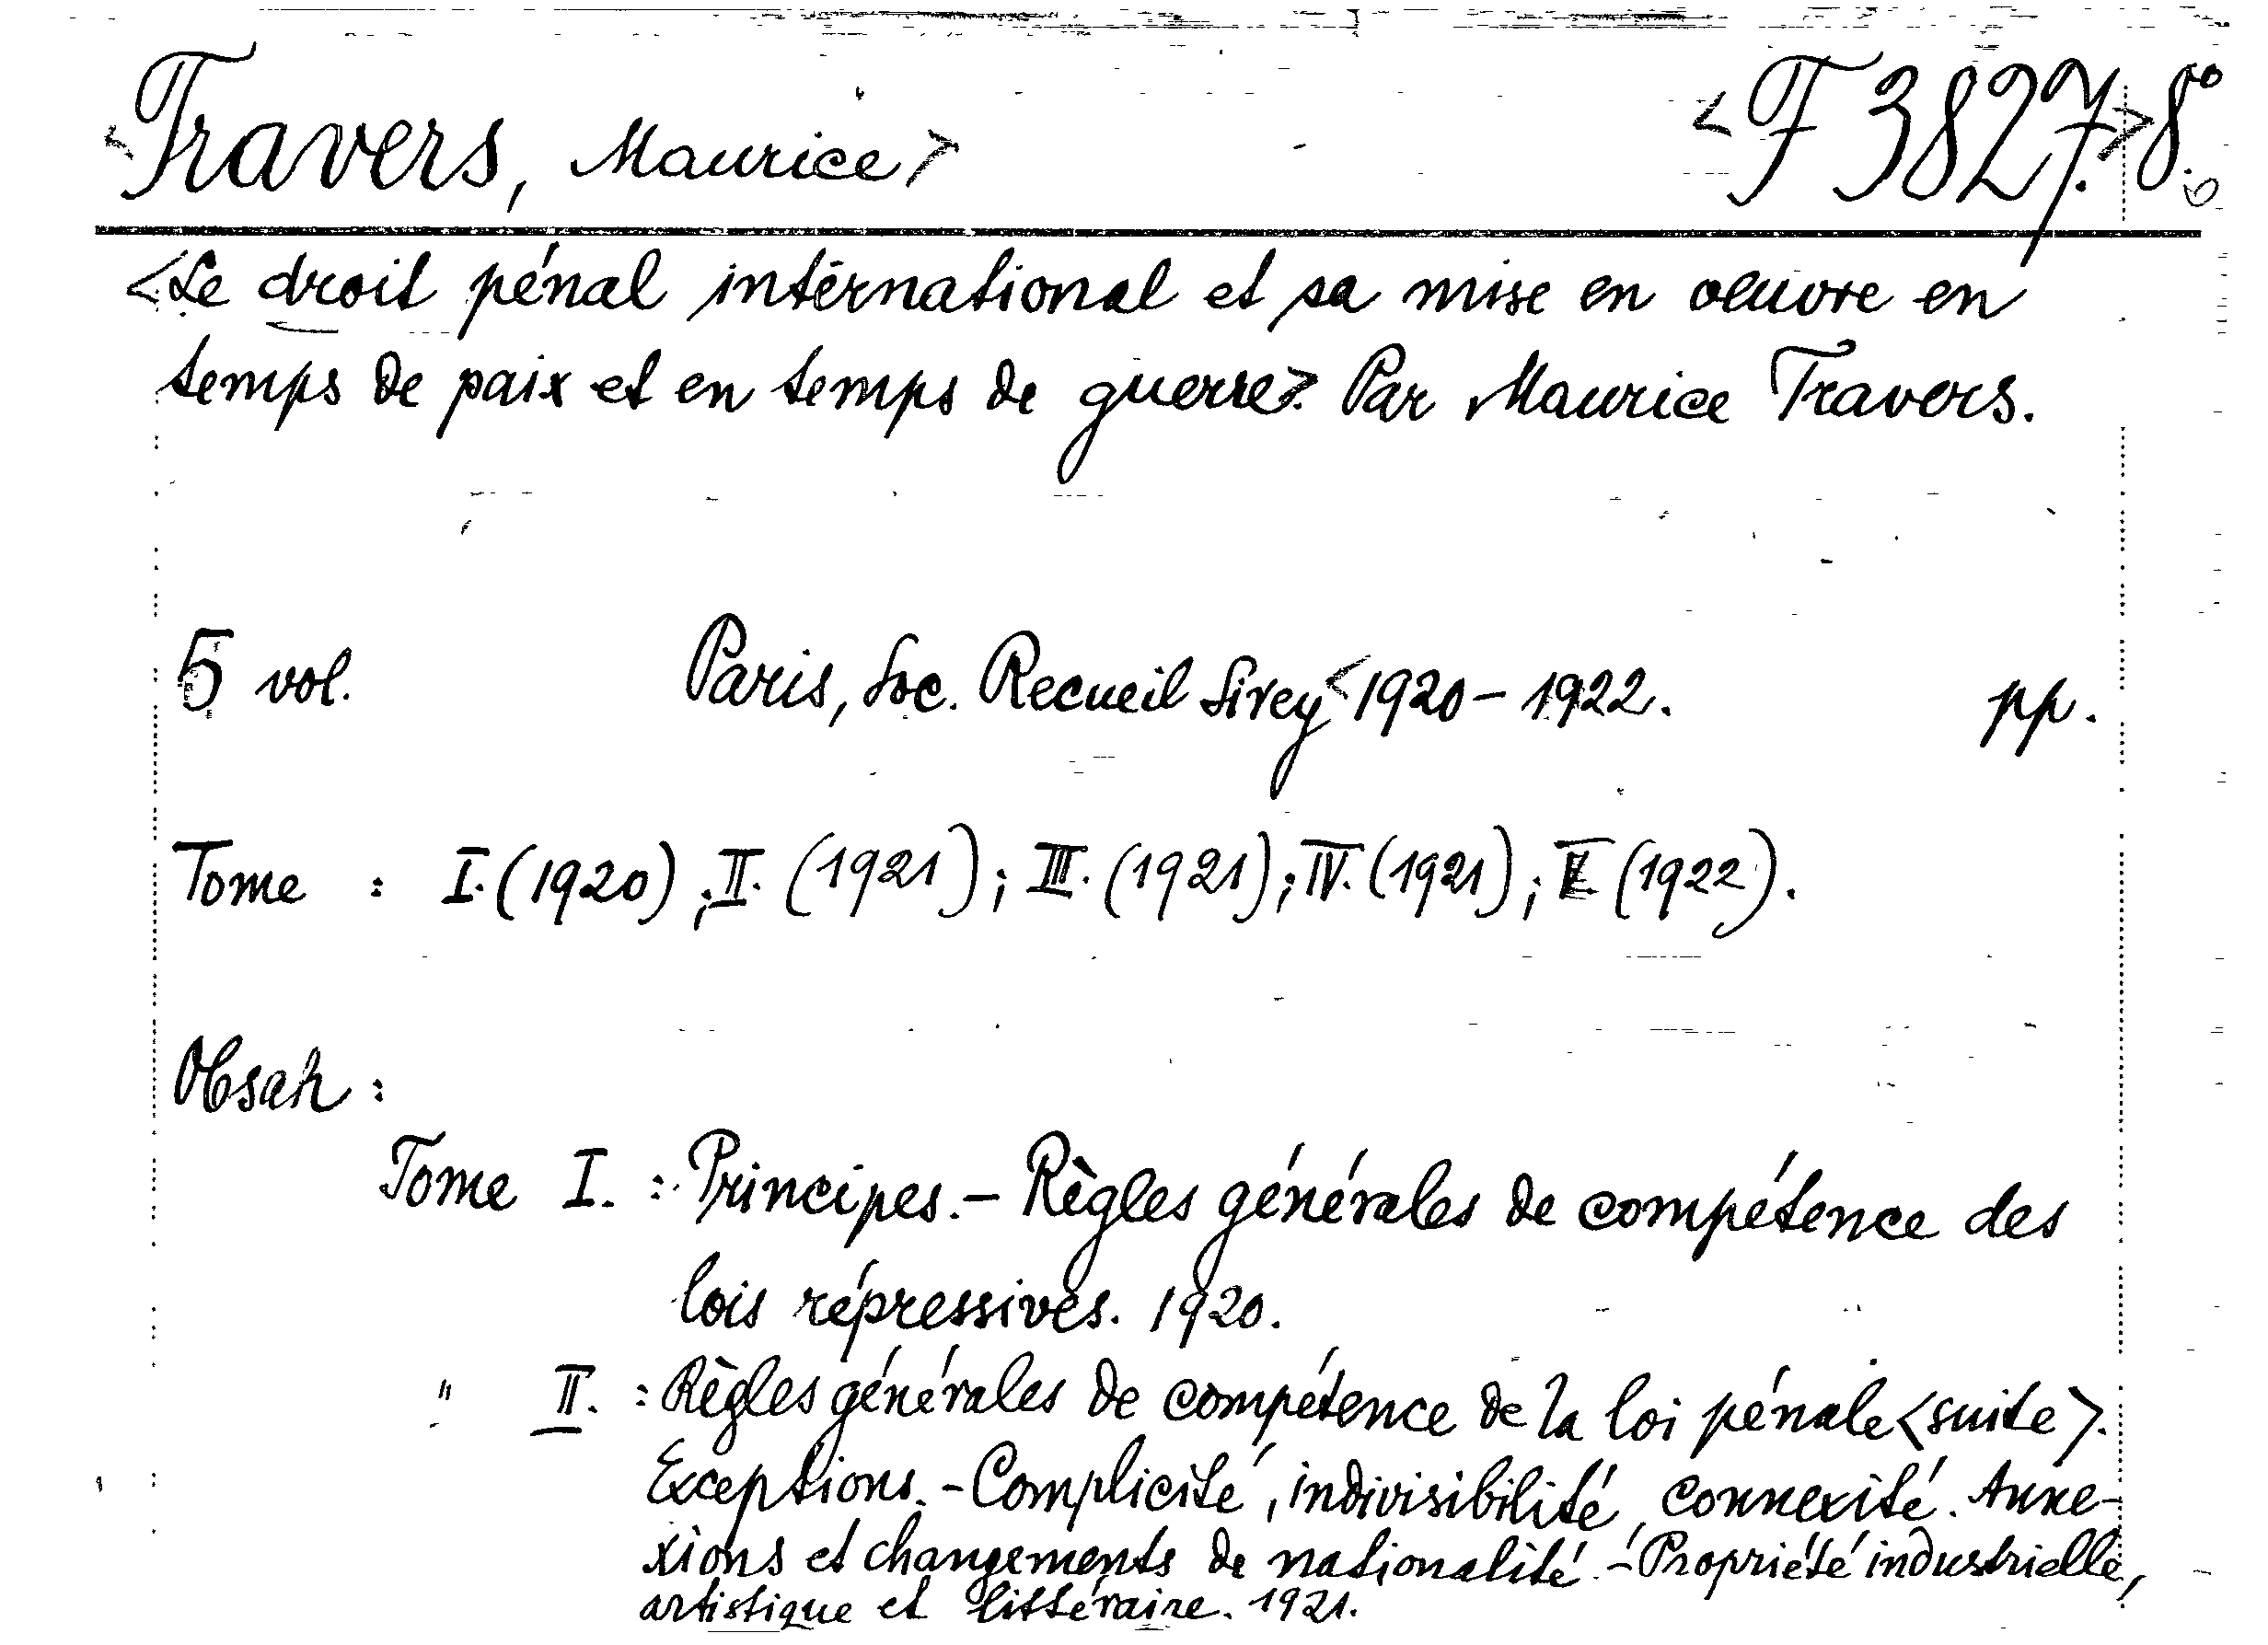 <Travers, Maurice> <F 3827.>8°
<Le droit pénal international et sa mise en oeuvre en
temps de paix et en temps de guerre>. Par Maurice Travers.
5 vol. Paris, Soc. Recueil Sirey<1920-1922. pp.
Tome : I.(1920); II. (1921); III. (1921); IV. (1921); V. (1922).
Obsah :
Tome I. : Principes.- Règles générales de compétence des
lois répressives. 1920.
" II. : Règles générales de compétence de la loi pénale <suite>.
Exceptions.-Complicité, indivisibilité, connexité. Anne-
xions et changements de nationalité.-Propriété industrielle,
artistique et littéraire. 1921.